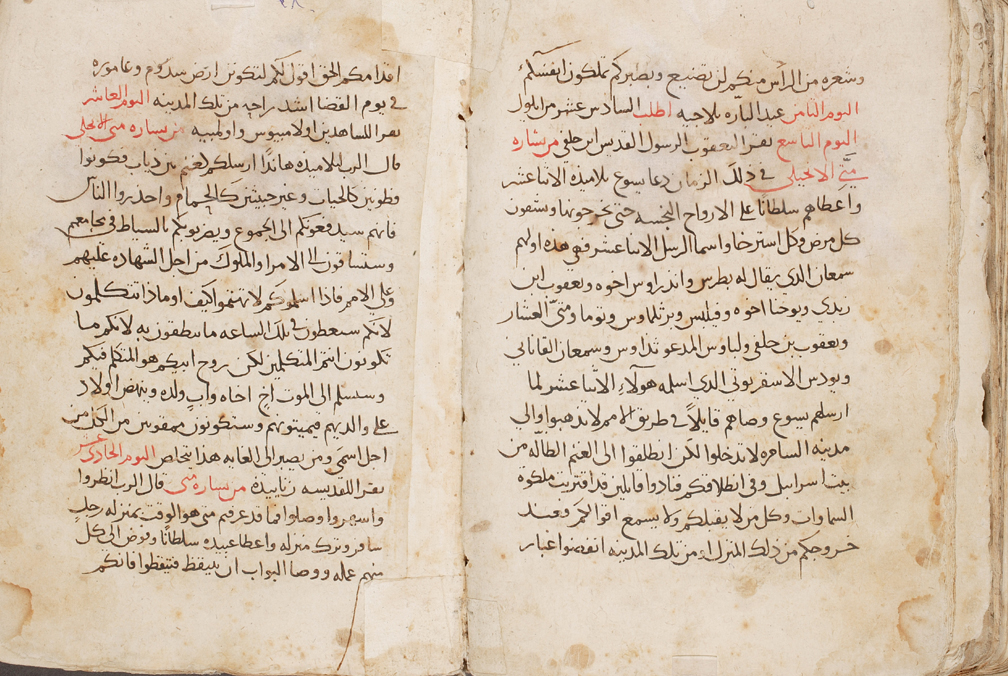 وشعره من الراس منكم لن تضيع وبصبركم تملكون انفسكم
اليوم الثامن عيد البارّه بلاجيه اطلب السادس عشر من ايلول
اليوم التاسع نقرا ليعقوب الرسول القديس ابن حلفى من بشاره
متّي الانجيلي في ذلك الزمان دعا يسوع تلاميذه الاثنا عشر
واعطاهم سلطانًا على الارواح النجسه حتى يخرجونها ويشفون
كل مرض وكل استرخا واسما الرسل الاثنا عشر فهي هذه اولهم
سمعان الذي يقال له بطرس واندراوس اخوه ويعقوب ابن
زبدى ويوحنا اخوه وفيلبس وبرثلماوس وتوما ومتّى العشار
ويعقوب بن حلفى ولباوس المدعو تداوس وسمعان القاناني
ويودس الاسخريوتي الذى اسلمه هولآءِ الاثنا عشر لما
ارسلهم يسوع وصاهم قايلاً في طريق الامم لا تذهبوا والى
مدينه السامره لا تدخلوا لكن انطلقوا الى الغنم الضاله من
بيت اسراييل وفي انطلاقكم فنادوا قايلين قد اقتربت ملكوة
السماوات وكل من لا يقبلكم ولا يسمع اقوالكم فعند
خروجكم من ذلك المنزل او من تلك المدينه انفضوا غبار
اقدامكم الحق اقول لكم لتكونن ارض سدوم وعاموره
في يوم القضا اشد راحه من تلك المدينه اليوم العاشر
نقرا للشاهدين اولامبيوس واولمبيه من بشاره متى الانجيلي
قال الرب لتلاميذه هانذا ارسلكم كغنم بين دياب فكونوا
فطونين كالحيات وغير خبيثين كالحمام واحذروا الناس
فانهم سيدفعونكم الى الجموع ويضربوكم بالسياط في مجامعهم
وستساقون الى الامرا والملوك من اجل الشهاده عليهم
وعلى الامم فاذا اسلموكم لا تهتموا كيف او ماذا تتكلمون
لانكم ستعطون في تلك الساعه ما تنطقون به لانكم ما
تكونون انتم المتكلمين لكن روح ابيكم هو المتكلم فيكم
وسيسلم الى الموت اخ اخاه واب ولده وينهض اولاد
على والديهم فيميتونهم وستكونون ممقوتين من الكل من
اجل اسمي ومن يصبر الى الغايه هذا يتخلص اليوم الحادى عشر
نقرا للقديسه زناييده من بشاره متى قال الرب انظروا
واسهروا وصلوا فما قد عرفتم متى هو الوقت بمنزله رجل
سافر وترك منزله واعطا عبيده سلطانًا وفوض الى كل
منهم عمله ووصا البواب ان يتيقظ فتيقظوا فانكم